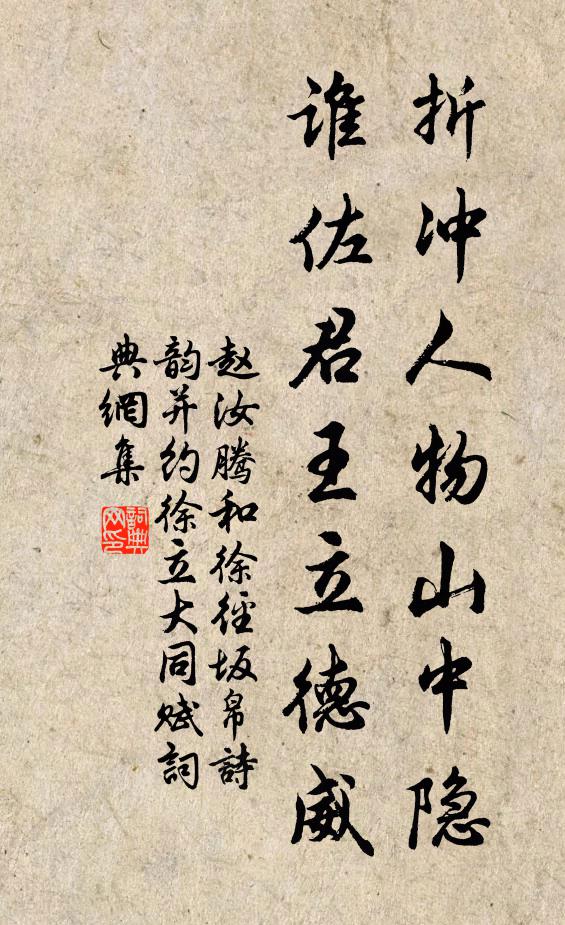 折冲人物山中隐
谁佐君王立德威
赵汝腾和徐径坂帛詩
韵并约徐立大同赋詞
典網集
詞典
网印